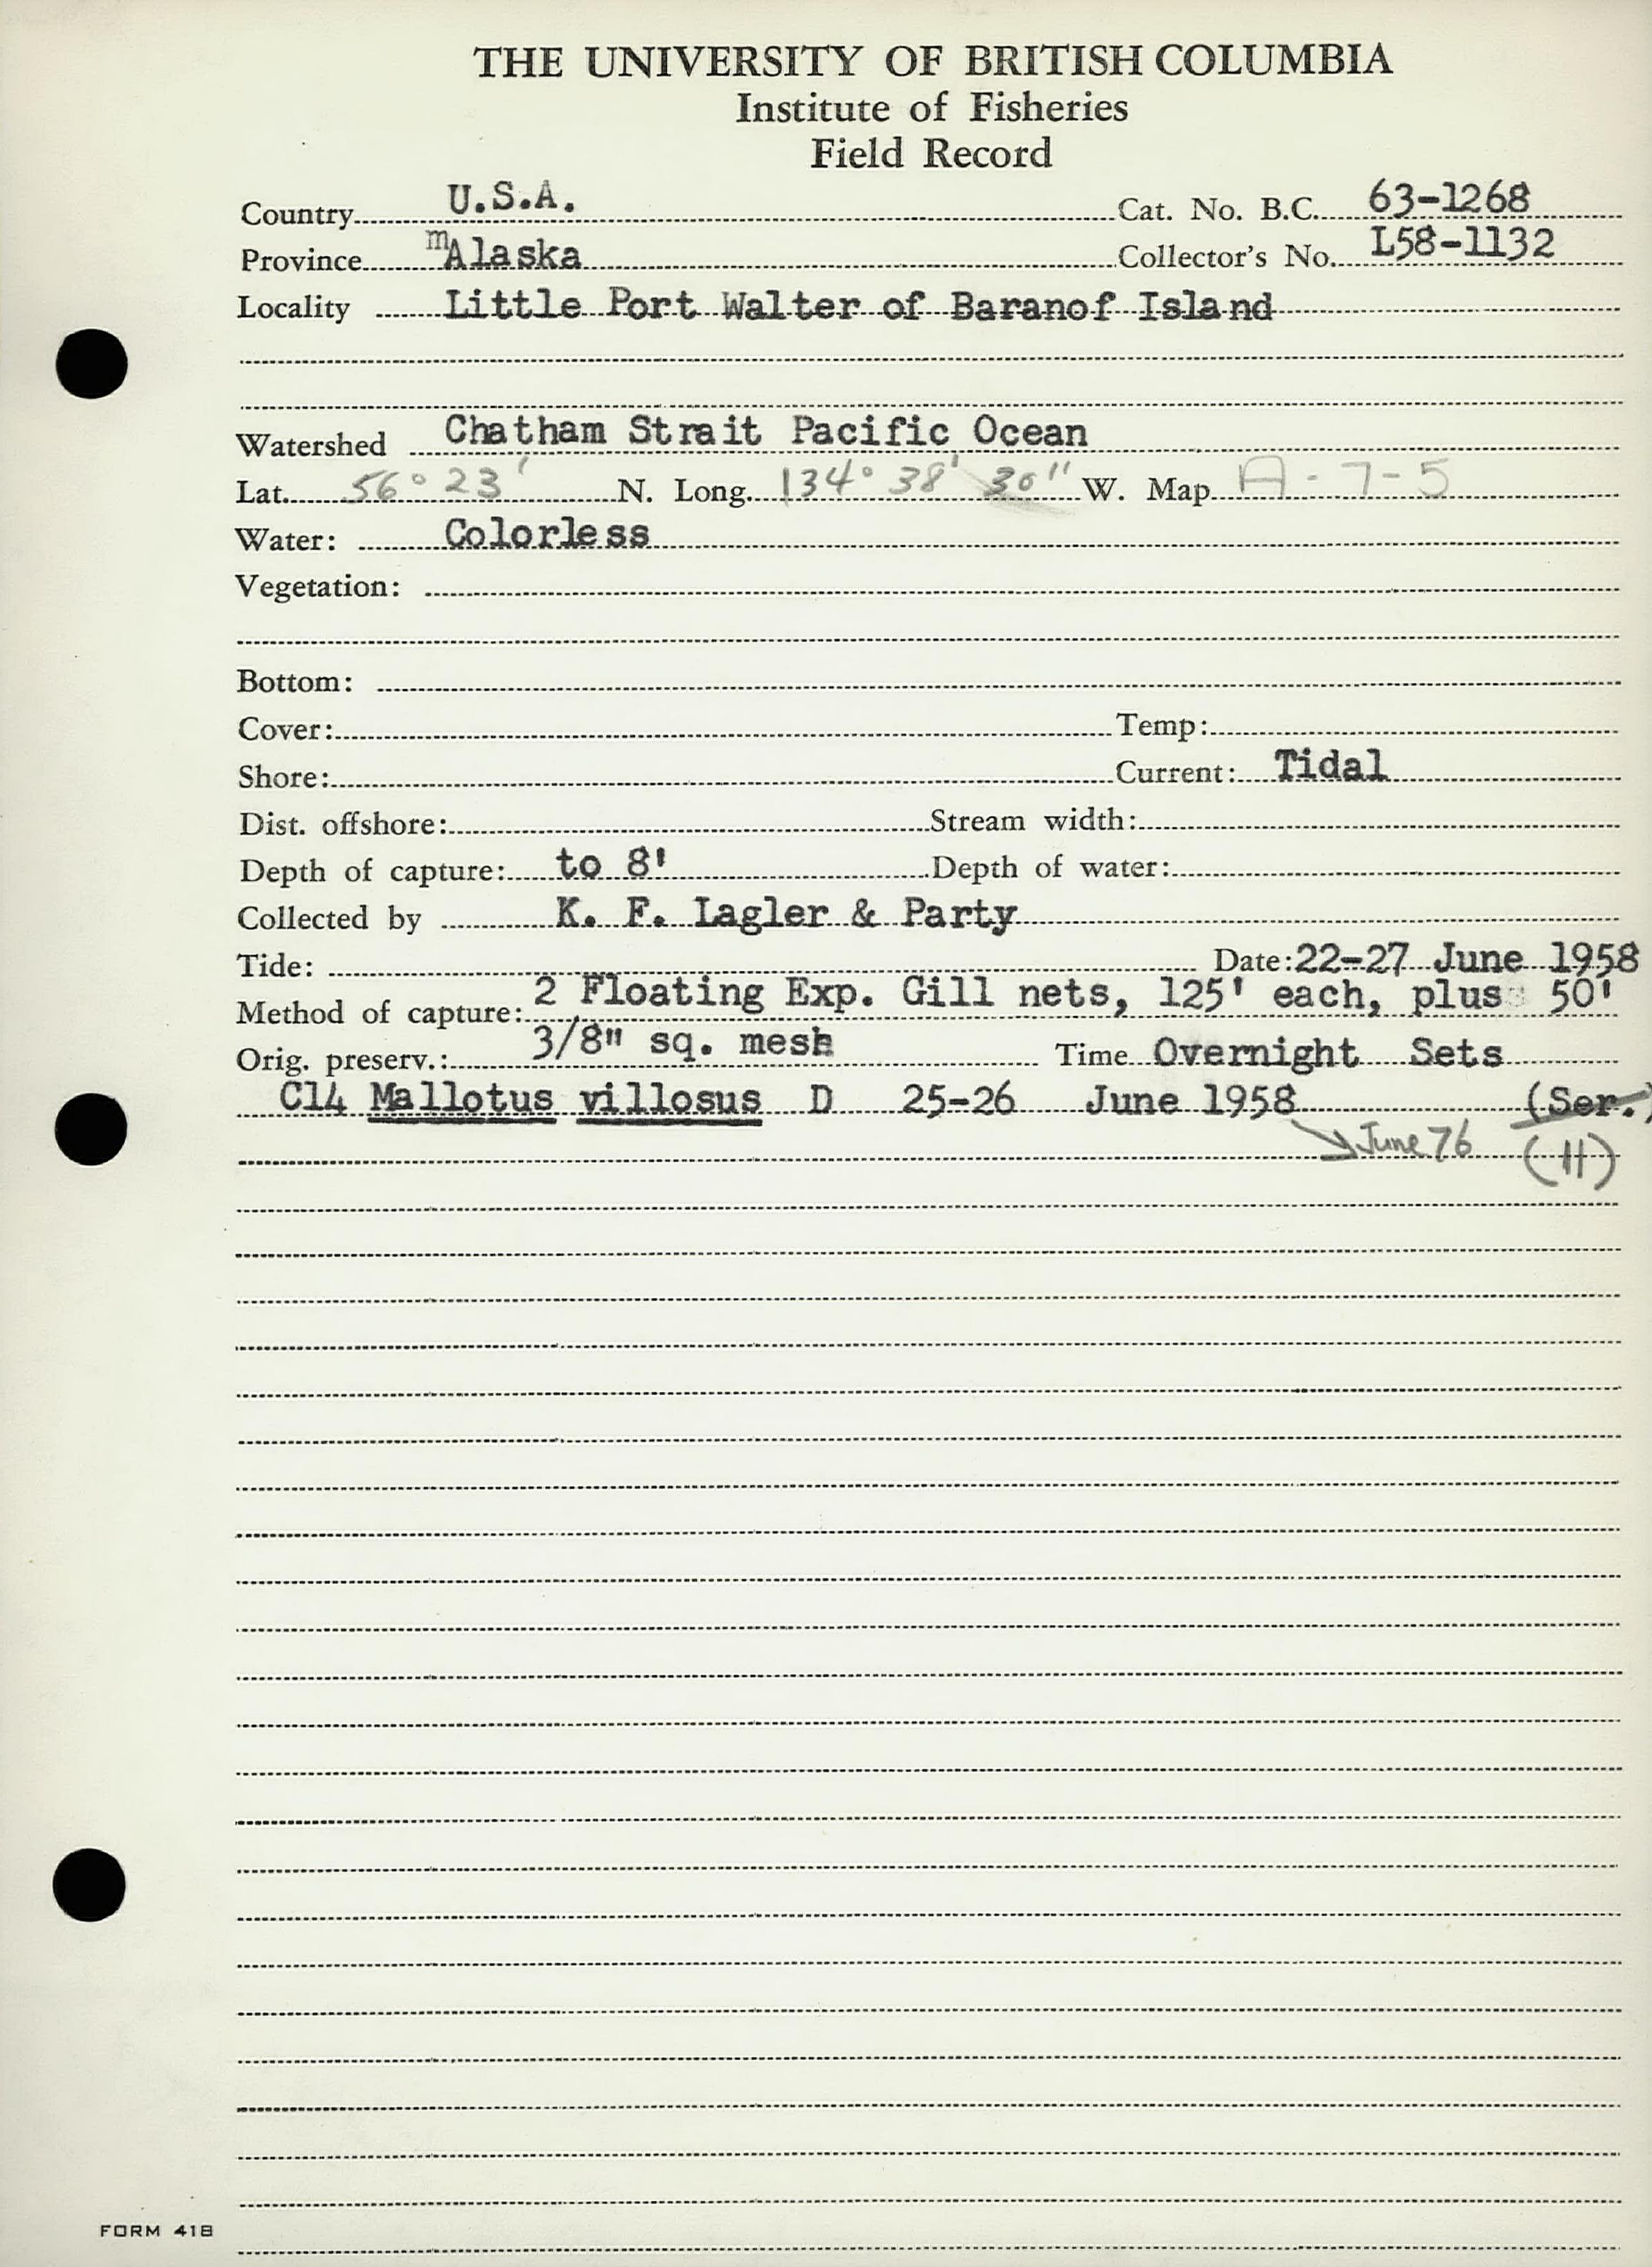 THE UNIVERSITY OF BRITISH COLUMBIA
Institute of Fisheries
Field Record
Country U.S.A. Cat. No. B.C. 63-1268
Province mAlaska Collector's No. L58-1132
Locality Little Port Walter of Baranof Island
Watershed Chatham Strait Pacific Ocean
Lat. 56° 23' N. Long. 134° 38' 30" W. Map A-7-5
Water: Colorless
Vegetation:
Bottom:
Cover: Temp:
Shore: Current: Tidal
Dist. offshore: Stream width:
Depth of capture: to 8' Depth of water:
Collected by K. F. Lagler & Party
Tide: Date: 22-27 June 1958
Method of capture: 2 Floating Exp. Gill nets, 125' each, plus 50'
Orig. preserv.: 3/8" sq. mesh Time Overnight Sets
C14 Mallotus villosus D 25-26 June 1958 (Ser.)
June 76 (11)
FORM 418